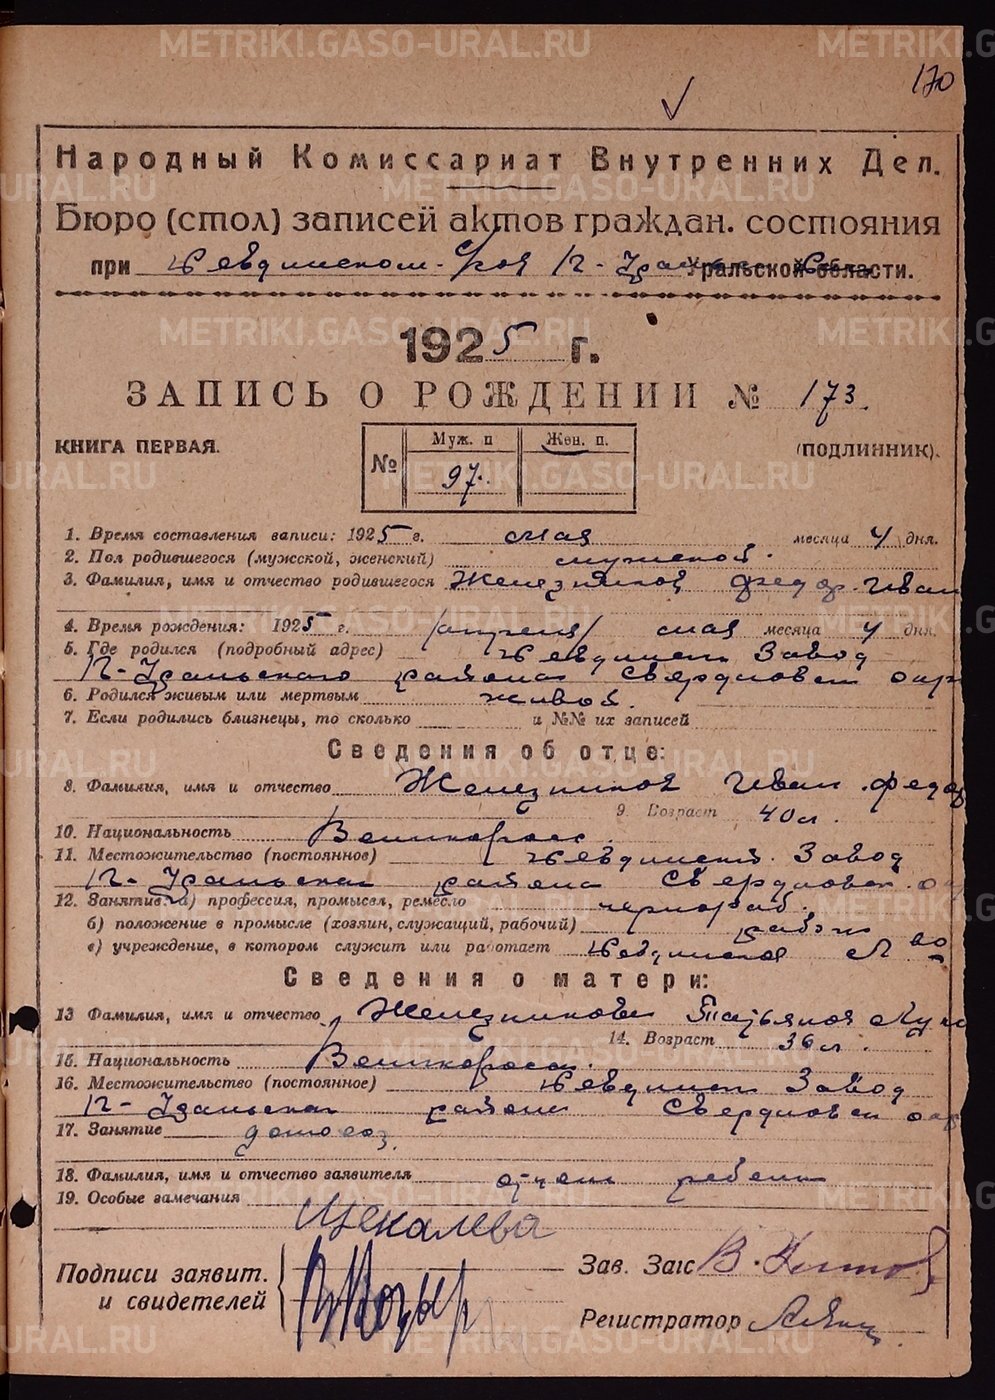 METRIKI.GASO-URAL.RU
170
Народный Комиссариат Внутренних Дел.
Бюро (стол) записей актов граждан. состояния
при Невдинском Уральской области.
1925 г.
ЗАПИСЬ О РОЖДЕНИИ № 173.
КНИГА ПЕРВАЯ.
(ПОДЛИННИК).
№ Муж. п Жен. п.
97.
1. Время составления записи: 1925 г. мая месяца 4 дня.
2. Пол родившегося (мужской, женский) мужской.
3. Фамилия, имя и отчество родившегося Железников Федор Иван
4. Время рождения: 1925 г. /апреля/ мая месяца 4 дня.
5. Где родился (подробный адрес) Завод
Уральского района Свердловск окр
6. Родился живым или мертвым живой.
7. Если родились близнецы, то сколько и №№ их записей
Сведения об отце:
8. Фамилия, имя и отчество Железников Иван Федор
9. Возраст 40 л.
10. Национальность Великоросс
11. Местожительство (постоянное) Завод
района Свердловск
12. Занятие: а) профессия, промысел, ремесло чернораб.
б) положение в промысле (хозяин, служащий, рабочий) рабоч
в) учреждение, в котором служит или работает
Сведения о матери:
13 Фамилия, имя и отчество Железникова Татьяна
14. Возраст 36 л.
15. Национальность Великоросса.
16. Местожительство (постоянное) Завод
района Свердловск окр
17. Занятие домохоз.
18. Фамилия, имя и отчество заявителя отчет ребенк
19. Особые замечания
Щекалева
Подписи заявит. и свидетелей
Зав. Загс
Регистратор